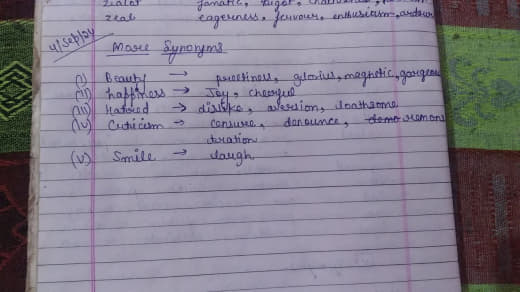 zealot fanatic, bigot,
zeal eagerness, fervour, enthusiasm, ardour
4/Sep/24
More Synonyms
(i) Beauty → preetiness, glorius, magnetic, gorgeous
(ii) happiness → Joy, cheerful
(iii) Hatred → dislike, aversion, loathsome
(iv) Criticism → censure, denounce, remons
tration
(v) Smile → laugh